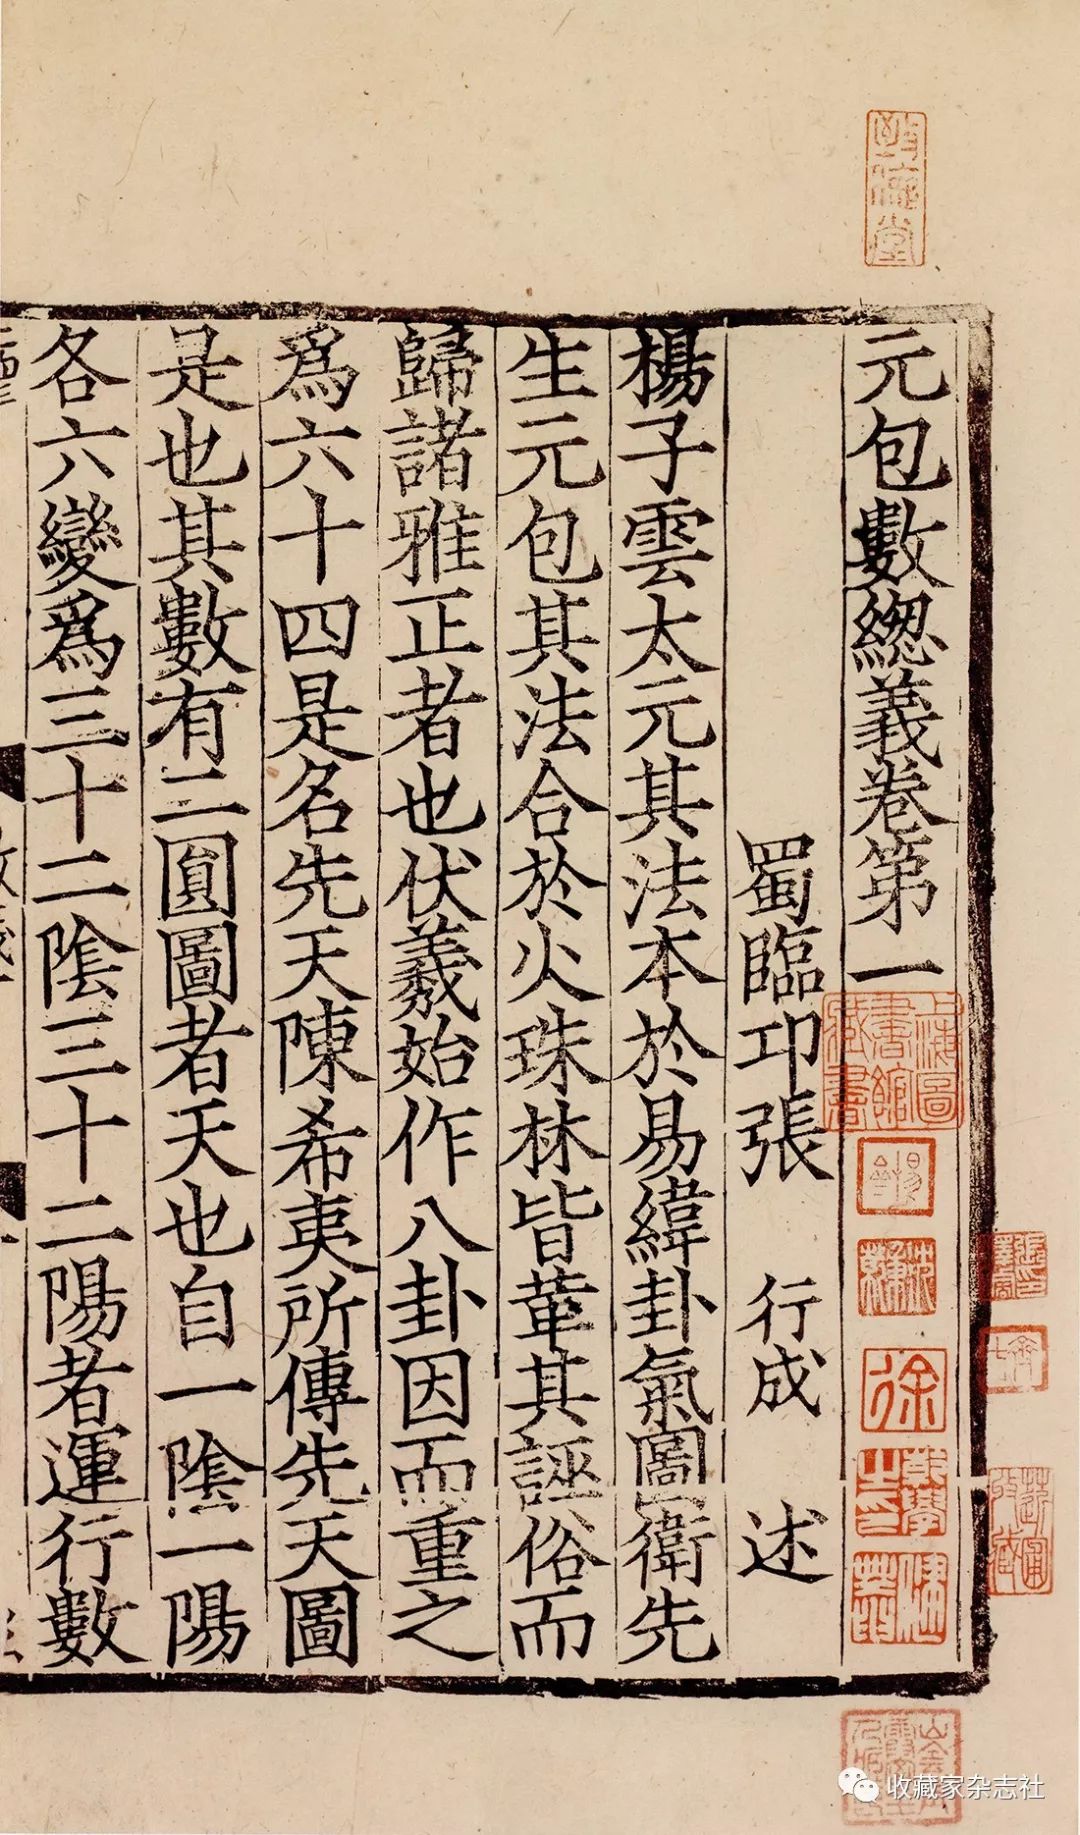 元包數緫義卷第一
蜀臨卭張 行成 述
楊子雲太元其法本於易緯卦氣圖衛先
生元包其法合於火珠林皆革其誣俗而
歸諸雅正者也伏羲始作八卦因而重之
爲六十四是名先天陳希夷所傳先天圖
是也其數有二圎圖者天也自一陰一陽
各六變爲三十二陰三十二陽者運行數
上海圖書館藏書
徐
收藏家杂志社